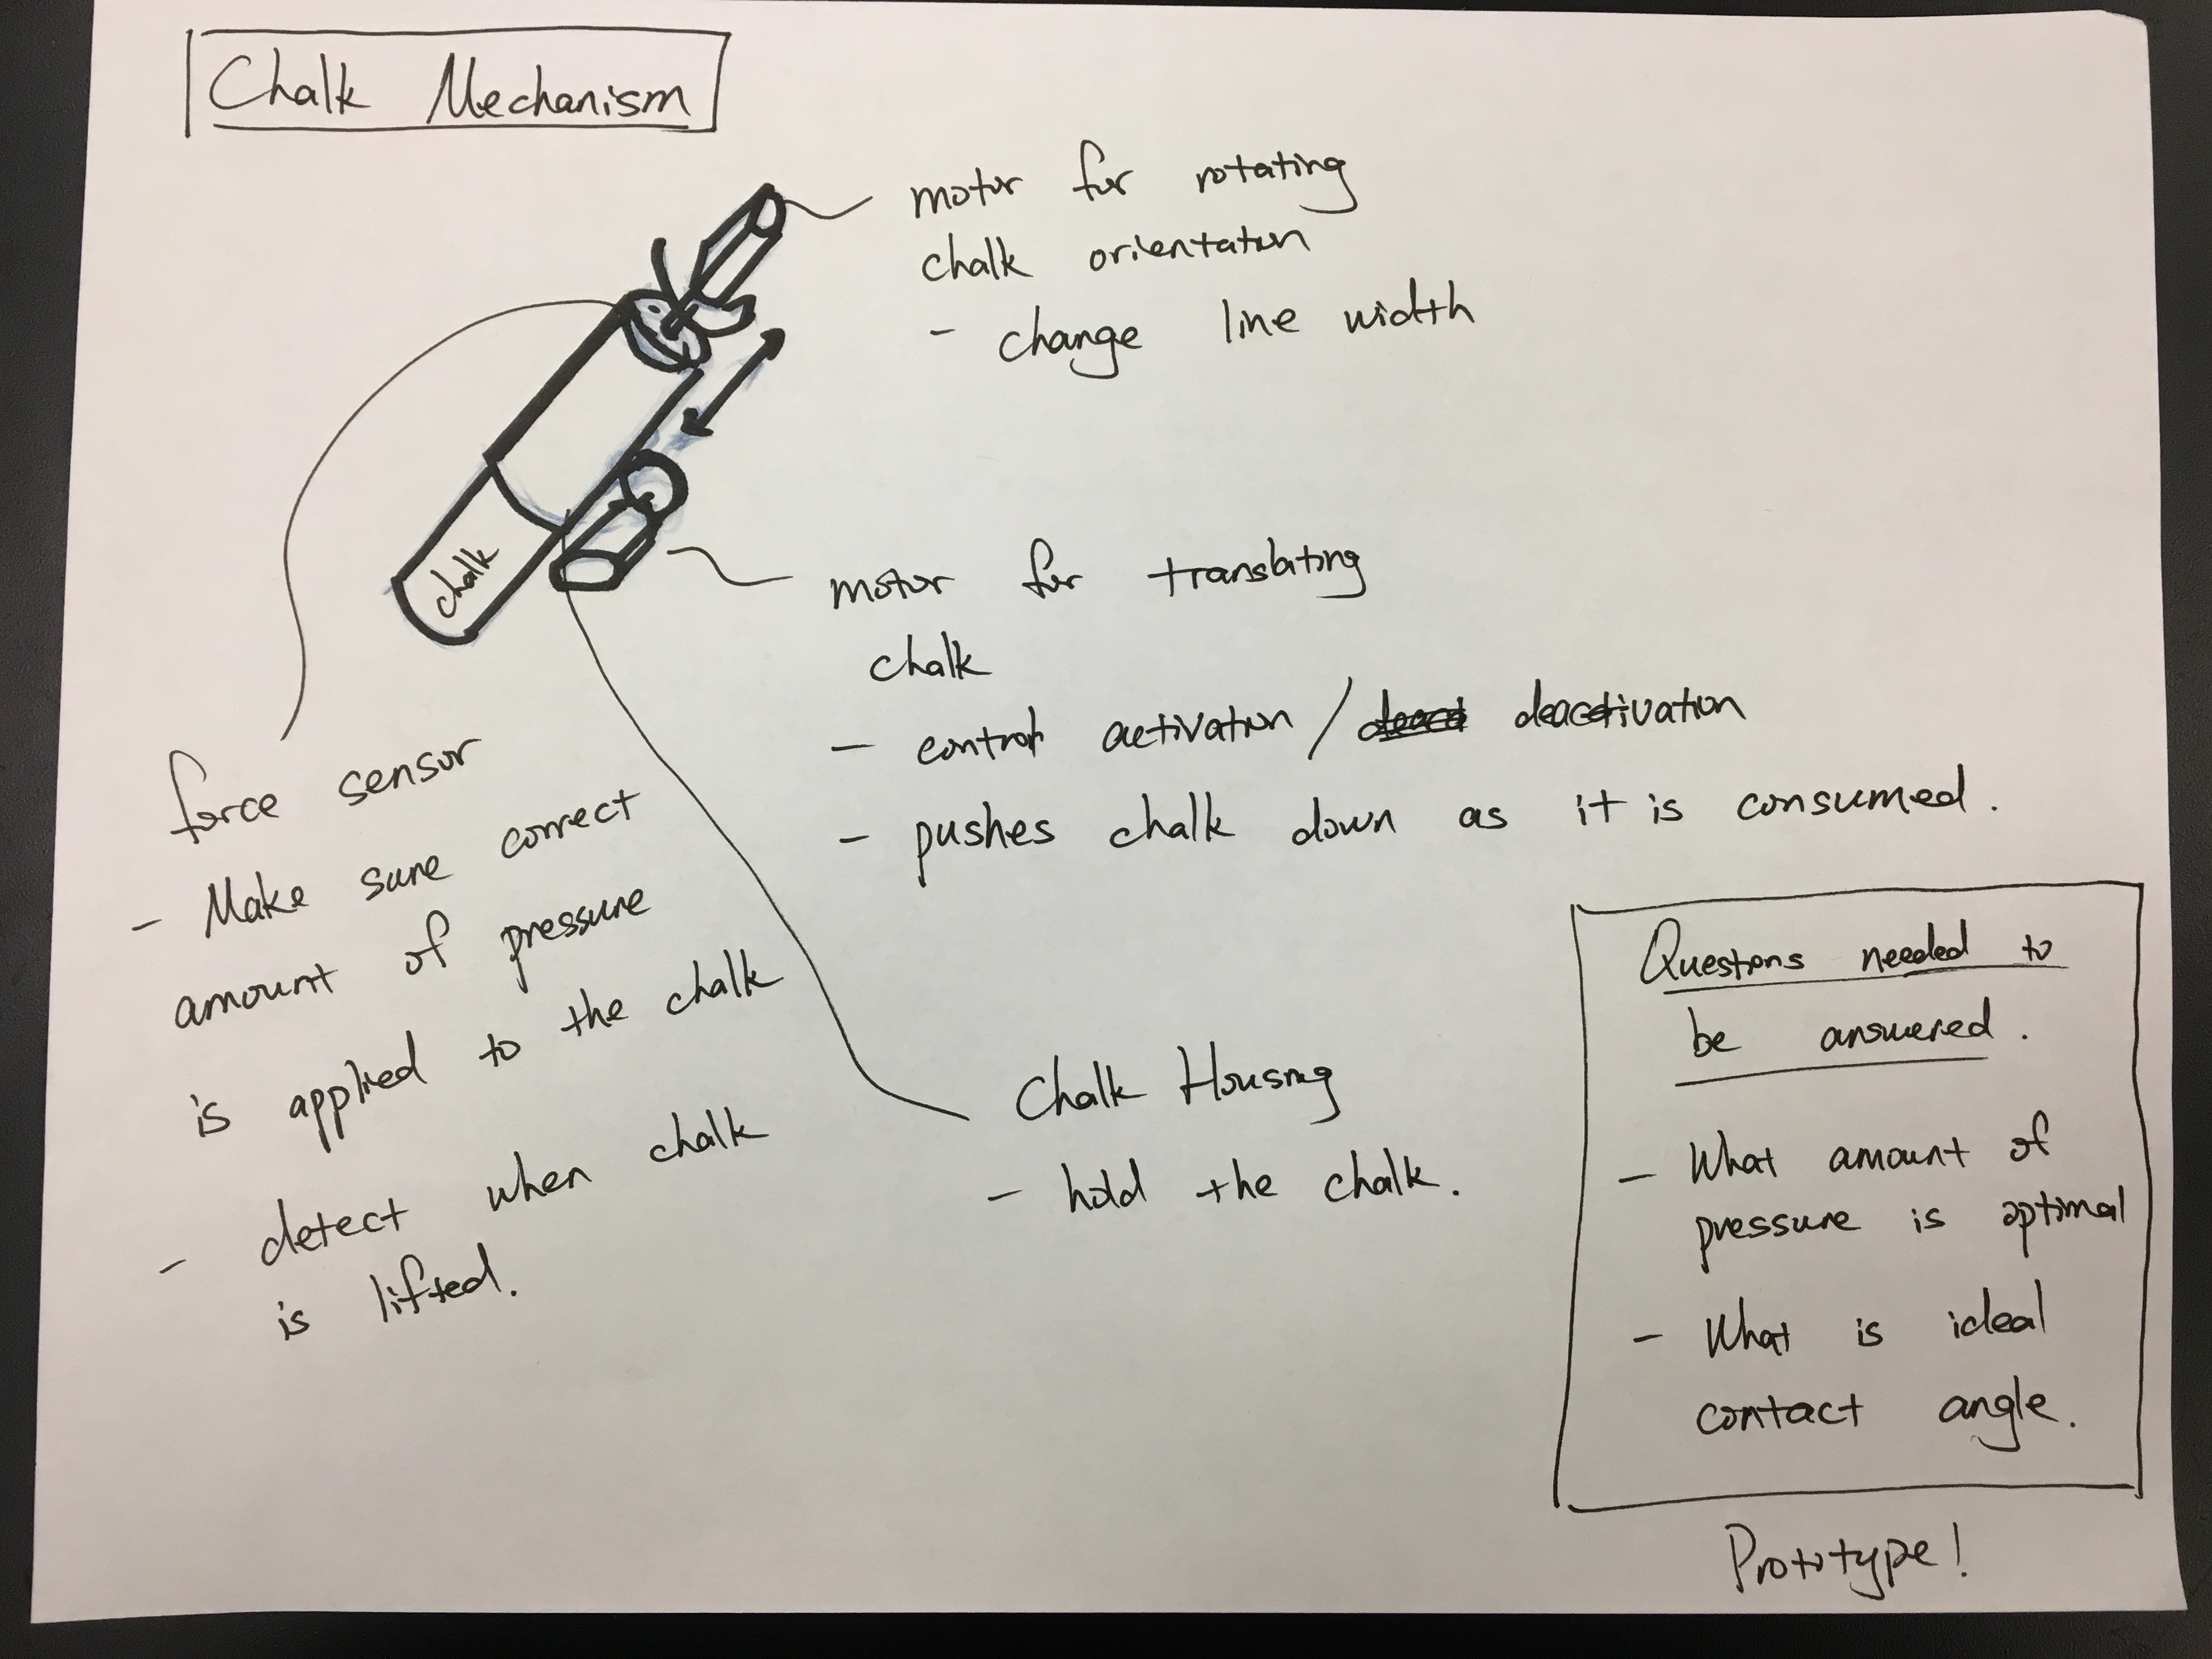 Chalk Mechanism
motor for rotating
chalk orientation
- change line width
chalk
motor for translating
chalk
- control activation / deactivation
- pushes chalk down as it is consumed.
force sensor
- Make sure correct
amount of pressure
is applied to the chalk
- detect when chalk
is lifted.
Chalk Housing
- hold the chalk.
Questions needed to
be answered.
- What amount of
pressure is optimal
- What is ideal
contact angle.
Prototype!